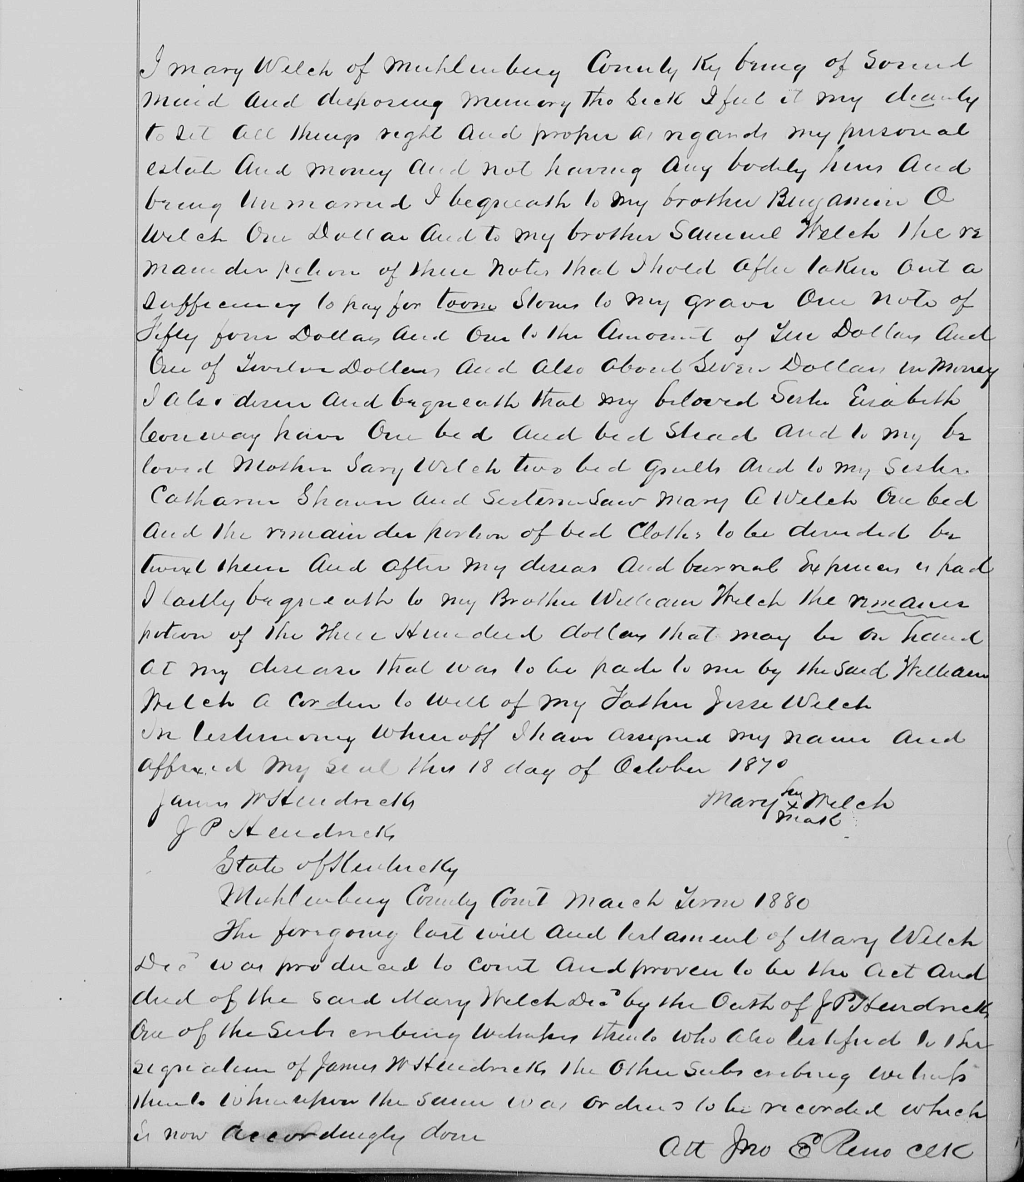 I Mary Welch of Muhlenburg County Ky being of Sound
Mind And disposing Memory tho Sick I feel it my deauty
to Set All things right And proper As regards my personal
estate And money And not having Any bodily heirs And
being Unmarried I bequeath to my brother Benjamin O
Welch One Dollar And to my brother Samuel Welch the re
mainder potion of three Notes that I hold After taken Out a
Sufficiency to pay for toom Stones to my grave One note of
Fifty four Dollars And One to the Amount of Ten Dollars And
One of Twelve Dollars And Also About Seven Dollars in Money
I also desier And bequeath that my beloved Sister Elsabeth
Conway have One bed And bed Stead And to my be
loved Mother Sary Welch two bed quilts And to my Sister
Catharin Shaver And Sister in Saw Mary A Welch One bed
And the remainder portion of bed Cloths to be devided be
twixt them And After my diseas And burreal Expences is paid
I lastly bequeath to my Brother William Welch the remaner
potion of the Three Hundred dollars that may be on hand
At my disease that was to be pade to me by the Said William
Welch A Cording to Will of my Father Jesse Welch
In testimony Whereoff I have assigned my name And
affixed My Seal this 18 day of October 1870
James W Hendricks Mary her x mark Welch
J P Hendricks
State of Kentucky
Muhlenburg County Court March Term 1880
The foregoing last will And testament of Mary Welch
Decd was produced to Court And proven to be the Act And
deed of the Said Mary Welch Decd by the Oath of J P Hendricks
One of the Subscribeing Witnesses thereto Who Also testified to the
signature of James W Hendricks the Other Subscribeing witness
thereto Whereupon the Same was orderes to be recorded which
is now Accordingly done
Att Jno E Reno Clk